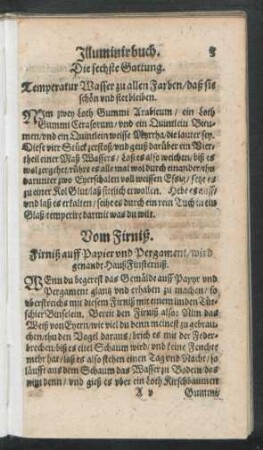 Illuminirbuch. 3
Die sechste Gattung.
Temperatur Wasser zu allen Farben / daß sie
schön vnd sterbleiben.
Nim zwey Loth Gummi Arabicum / ein Loth
Gummi Cerasorum / vnd ein Quintlein
vnd ein Quintlein weisse Myrrha / die lauter sey.
Diese vier Stück zerstoß / vnd geuß darüber ein Vier-
theil einer Maß Wassers / Laß es also weichen / biß es
wol zergehet / rühre es alle mal wol durch einander / thu
darunter zwo Eyerschalen voll weissen Essig / setze es
zu einer Kol Glut / laß sittlich erwallen. Hebe es auff /
vnd laß es erkalten / seihe es durch ein rein Tuch in ein
Glaß temperire darmit was du wilt.
Vom Firniß.
Firniß auff Papier vnd Pergament / wird
genandt Hauß Finsterniß.
Wenn du begerest das Gemälde auff Papyr vnd
Pergament glantz vnd erhaben zu machen / so
vberstreichs mit diesem Firniß mit einem linden
Pinselein. Bereit den Firniß also: Nim das
Weiß von Eyern / wie viel du denn meinest zu gebrau-
chen / thu den Vogel daraus / brich es mit der Feder-
brechen / biß es eitel Schaum wird / vnd keine Feuchte
mehr hat / laß es also stehen einen Tag vnd Nacht / so
läufft aus dem Schaum das Wasser zu Boden / das
nim denn / vnd gieß es vber ein Loth Kirschbäumen
A v Gummi /